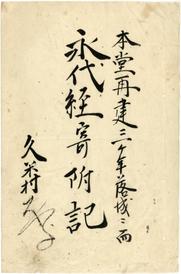 本堂再建三ケ年落城ニ而
永代経寄附記
久米村